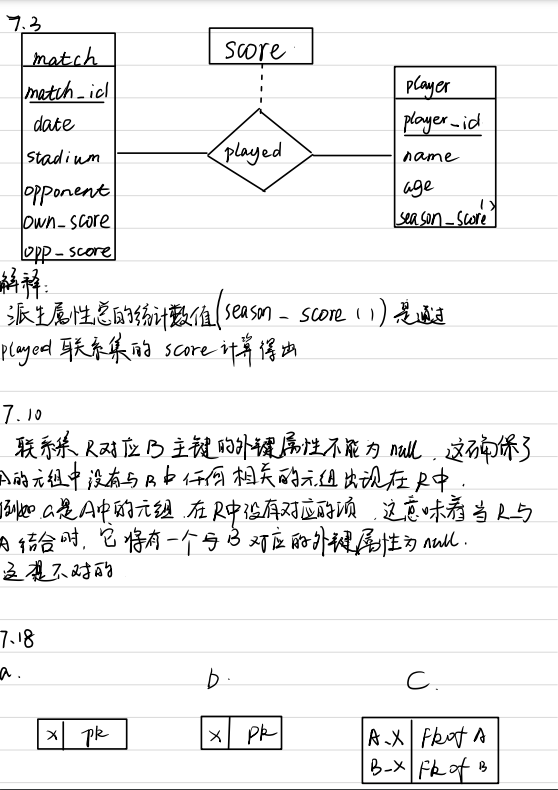 7.3
match
match_id
date
stadium
opponent
own_score
opp_score
score
played
player
player_id
name
age
season_score()
解释:
派生属性总的统计数值(season_score()) 是通过
played 联系集的 score 计算得出
7.10
联系集 R对应 B 主键的外键属性不能为 null, 这确保了
A的元组中没有与B中任何相关的元组出现在 R中.
例如 a是A中的元组, 在R中没有对应的项, 这意味着当 R与
A 结合时, 它将有一个与B 对应的外键属性为 null.
这是不对的
7.18
a. b. C.
x pk x pk
A_X Fk of A
B_X Fk of B